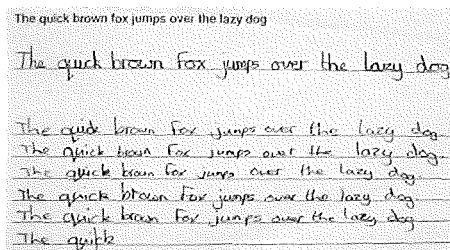 The quick brown fox jumps over the lazy dog
The quick brown fox jumps over the lazy dog
The quick brown fox jumps over the lazy dog
The quick brown fox jumps over the lazy dog.
The quick brown fox jumps over the lazy dog
The quick brown fox jumps over the lazy dog.
The quick brown fox jumps over the lazy dog
The quick